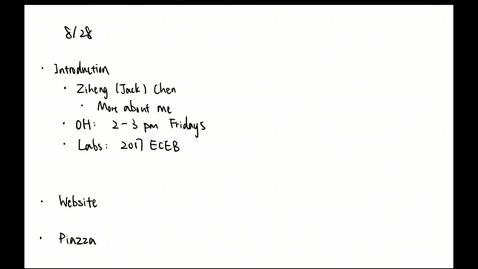 8/28
• Introduction
• Ziheng (Jack) Chen
• More about me
• OH: 2-3 pm Fridays
• Labs: 2017 ECEB
• Website
• Piazza